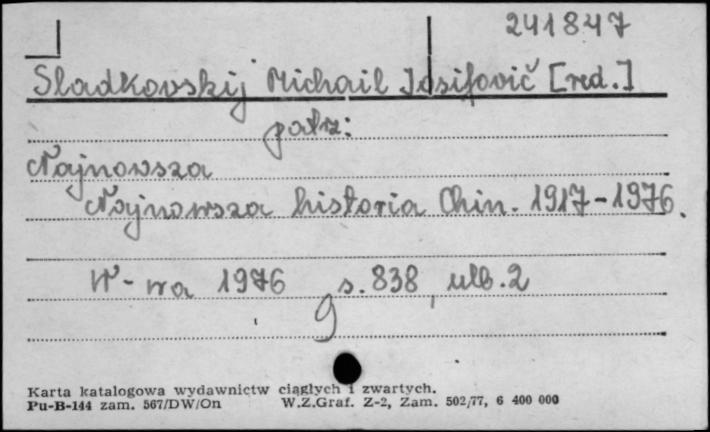 241847
Sladkovskij Michail Iosifovič [red.]
patrz:
Najnowsza
Najnowsza historia Chin. 1917-1976.
W-wa 1976 s. 838, nlb. 2
g
Karta katalogowa wydawnictw ciągłych i zwartych.
Pu-B-144 zam. 567/DW/On W.Z.Graf. Z-2, Zam. 502/77, 6 400 000